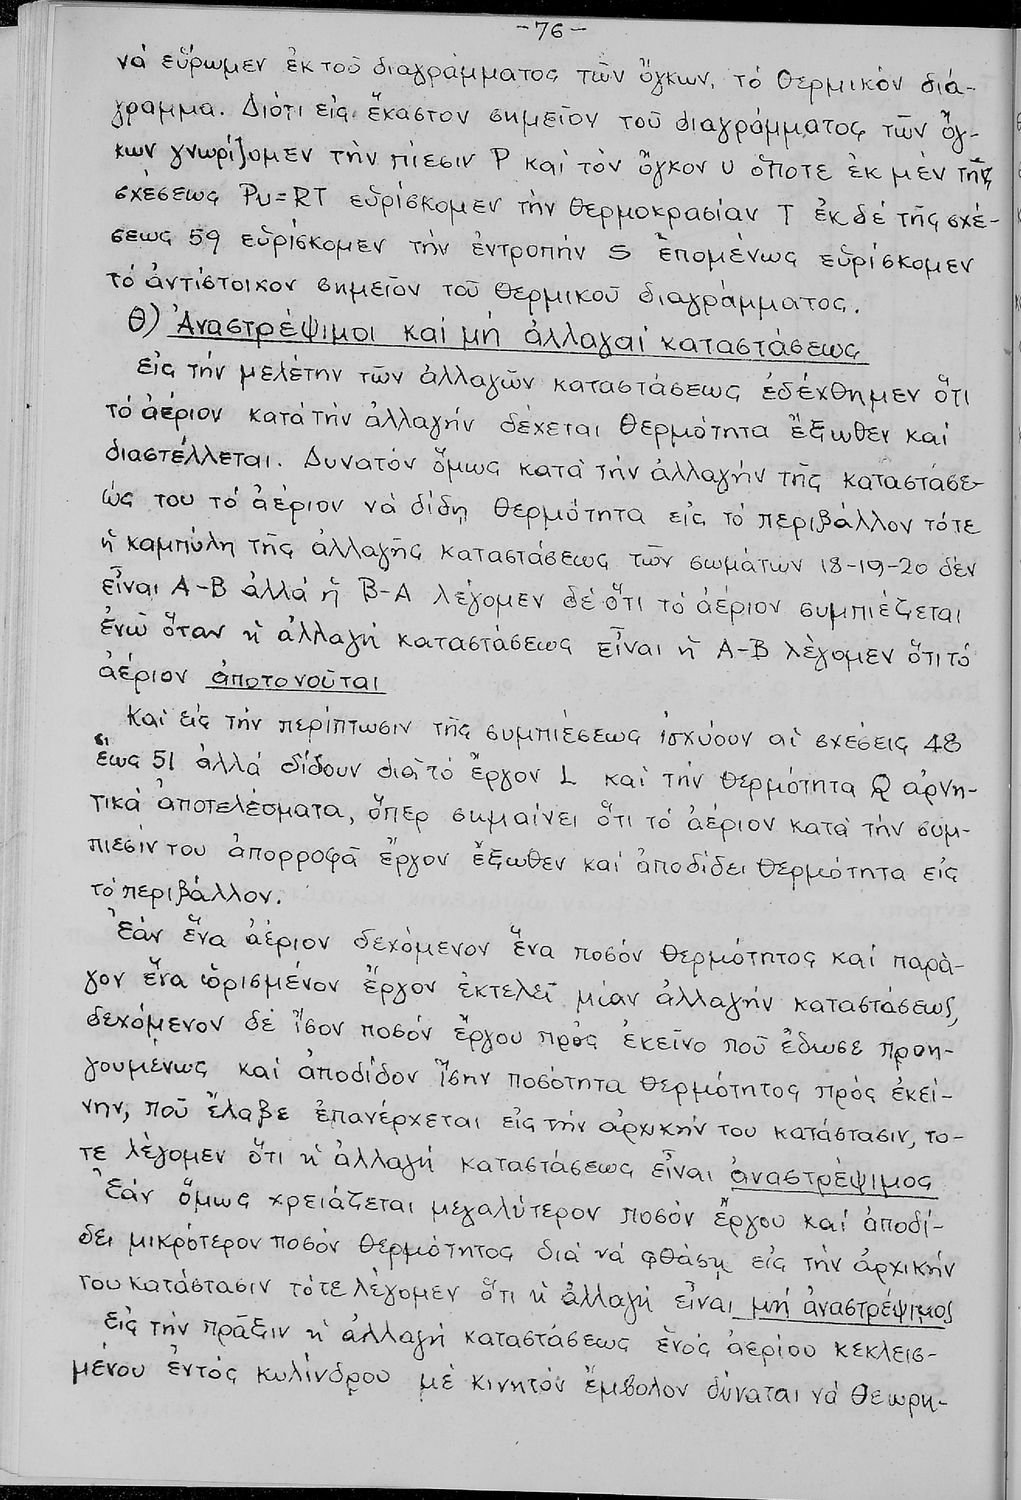 -76-
νά εὕρωμεν ἐκ τοῦ διαγράμματος τῶν ὄγκων, τό θερμικόν διά-
γραμμα. Διότι εἰς ἕκαστον σημεῖον τοῦ διαγράμματος τῶν ὄγ-
κων γνωρίζομεν τήν πίεσιν P καί τόν ὄγκον υ ὁπότε ἐκ μέν τῆς
σχέσεως Pυ=RT εὑρίσκομεν τήν θερμοκρασίαν T ἐκ δέ τῆς σχέ-
σεως 59 εὑρίσκομεν τήν ἐντροπήν S ἑπομένως εὑρίσκομεν
τό ἀντίστοιχον σημεῖον τοῦ θερμικοῦ διαγράμματος.
θ) Ἀναστρέψιμοι καί μή ἀλλαγαί καταστάσεως
Εἰς τήν μελέτην τῶν ἀλλαγῶν καταστάσεως ἐδέχθημεν ὅτι
τό ἀέριον κατά τήν ἀλλαγήν δέχεται θερμότητα ἔξωθεν καί
διαστέλλεται. Δυνατόν ὅμως κατά τήν ἀλλαγήν τῆς καταστάσε-
ώς του τό ἀέριον νά δίδῃ θερμότητα εἰς τό περιβάλλον τότε
ἡ καμπύλη τῆς ἀλλαγῆς καταστάσεως τῶν σωμάτων 18-19-20 δέν
εἶναι A-B ἀλλά ἡ B-A λέγομεν δέ ὅτι τό ἀέριον συμπιέζεται
ἐνῶ ὅταν ἡ ἀλλαγή καταστάσεως εἶναι ἡ A-B λέγομεν ὅτι τό
ἀέριον ἀποτονοῦται
Καί εἰς τήν περίπτωσιν τῆς συμπιέσεως ἰσχύουν αἱ σχέσεις 48
ἕως 51 ἀλλά δίδουν διά τό ἔργον L καί τήν θερμότητα Q ἀρνη-
τικά ἀποτελέσματα, ὅπερ σημαίνει ὅτι τό ἀέριον κατά τήν συμ-
πίεσίν του ἀπορροφᾶ ἔργον ἔξωθεν καί ἀποδίδει θερμότητα εἰς
τό περιβάλλον.
Ἐάν ἕνα ἀέριον δεχόμενον ἕνα ποσόν θερμότητος καί παρά-
γον ἕνα ὡρισμένον ἔργον ἐκτελεῖ μίαν ἀλλαγήν καταστάσεως,
δεχόμενον δέ ἴσον ποσόν ἔργου πρός ἐκεῖνο ποῦ ἔδωσε προη-
γουμένως καί ἀποδίδον ἴσην ποσότητα θερμότητος πρός ἐκεί-
νην, ποῦ ἔλαβε ἐπανέρχεται εἰς τήν ἀρχικήν του κατάστασιν, τό-
τε λέγομεν ὅτι ἡ ἀλλαγή καταστάσεως εἶναι ἀναστρέψιμος
Ἐάν ὅμως χρειάζεται μεγαλύτερον ποσόν ἔργου καί ἀποδί-
δει μικρότερον ποσόν θερμότητος διά νά φθάσῃ εἰς τήν ἀρχικήν
του κατάστασιν τότε λέγομεν ὅτι ἡ ἀλλαγή εἶναι μή ἀναστρέψιμος
Εἰς τήν πρᾶξιν ἡ ἀλλαγή καταστάσεως ἑνός ἀερίου κεκλεισ-
μένου ἐντός κυλίνδρου μέ κινητόν ἔμβολον δύναται νά θεωρη-